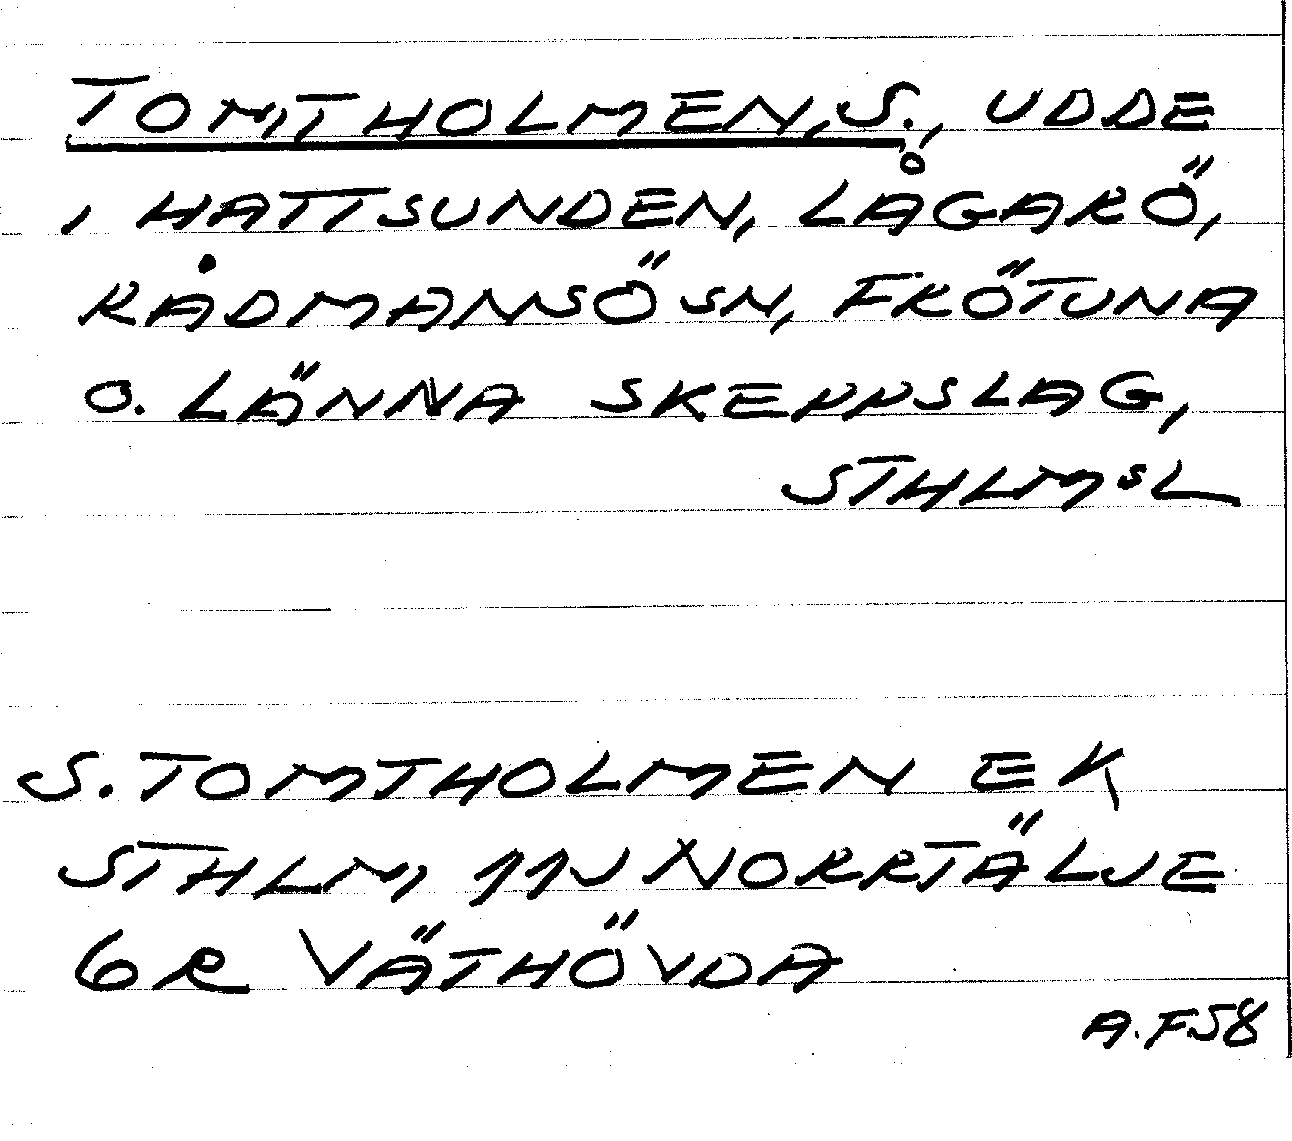 TOMTHOLMEN, S., UDDE
I HATTSUNDEN, LÅGARÖ,
RÅDMANSÖ SN, FRÖTUNA
O. LÄNNA SKEPPSLAG,
STHLMSL
S. TOMTHOLMEN EK
STHLM, 11J NORRTÄLJE
GR VÄTHÖVDA
A.F58